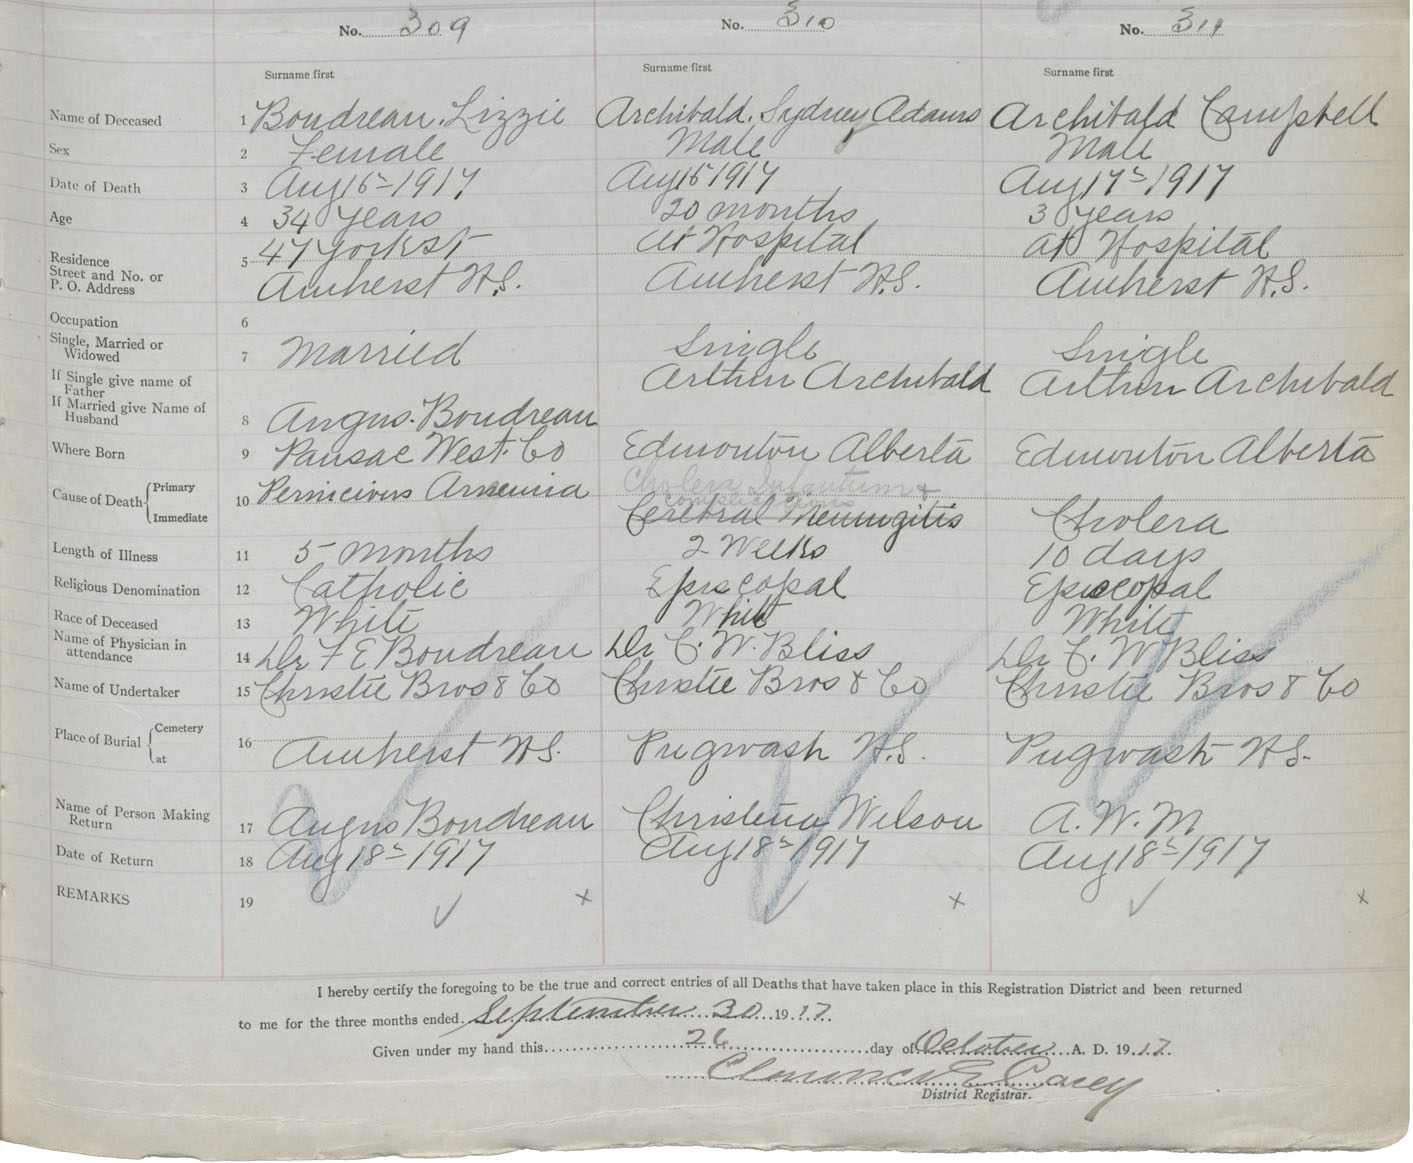 No. 309 No. 310 No. 311
Surname first Surname first Surname first
Name of Deceased 1 Boudreau, Lizzie Archibald, Sydney Adams Archibald Campbell
Sex 2 Female Male Male
Date of Death 3 Aug 16 - 1917 Aug 15 1917 Aug 17 - 1917
Age 4 34 years 20 months 3 years
Residence 5 47 York St at Hospital at Hospital
Street and No. or
P. O. Address Amherst N.S. Amherst N.S. Amherst N.S.
Occupation 6
Single, Married or
Widowed 7 Married Single Single
If Single give name of
Father Arthur Archibald Arthur Archibald
If Married give Name of
Husband 8 Angus. Boudreau
Where Born 9 Pausac West. Co Edmonton Alberta Edmonton Alberta
Cause of Death Primary 10 Pernicious Anaemia Cholera Infantum +
complications
Immediate Cerebral Meningitis Cholera
Length of Illness 11 5 months 2 Weeks 10 days
Religious Denomination 12 Catholic Episcopal Episcopal
Race of Deceased 13 White White White
Name of Physician in
attendance 14 Dr F E Boudreau Dr C. W. Bliss Dr C. W Bliss
Name of Undertaker 15 Christie Bros & Co Christie Bros & Co Christie Bros & Co
Place of Burial Cemetery 16
at Amherst N.S. Pugwash N.S. Pugwash N.S.
Name of Person Making
Return 17 Angus Boudreau Christena Wilson A. W. M
Date of Return 18 Aug 18 - 1917 Aug 18 - 1917 Aug 18 - 1917
REMARKS 19 ✓ x ✓ x ✓ x
I hereby certify the foregoing to be the true and correct entries of all Deaths that have taken place in this Registration District and been returned
to me for the three months ended September 30 1917.
Given under my hand this 26 day of October A. D. 1917.
Clarence E Casey
District Registrar.